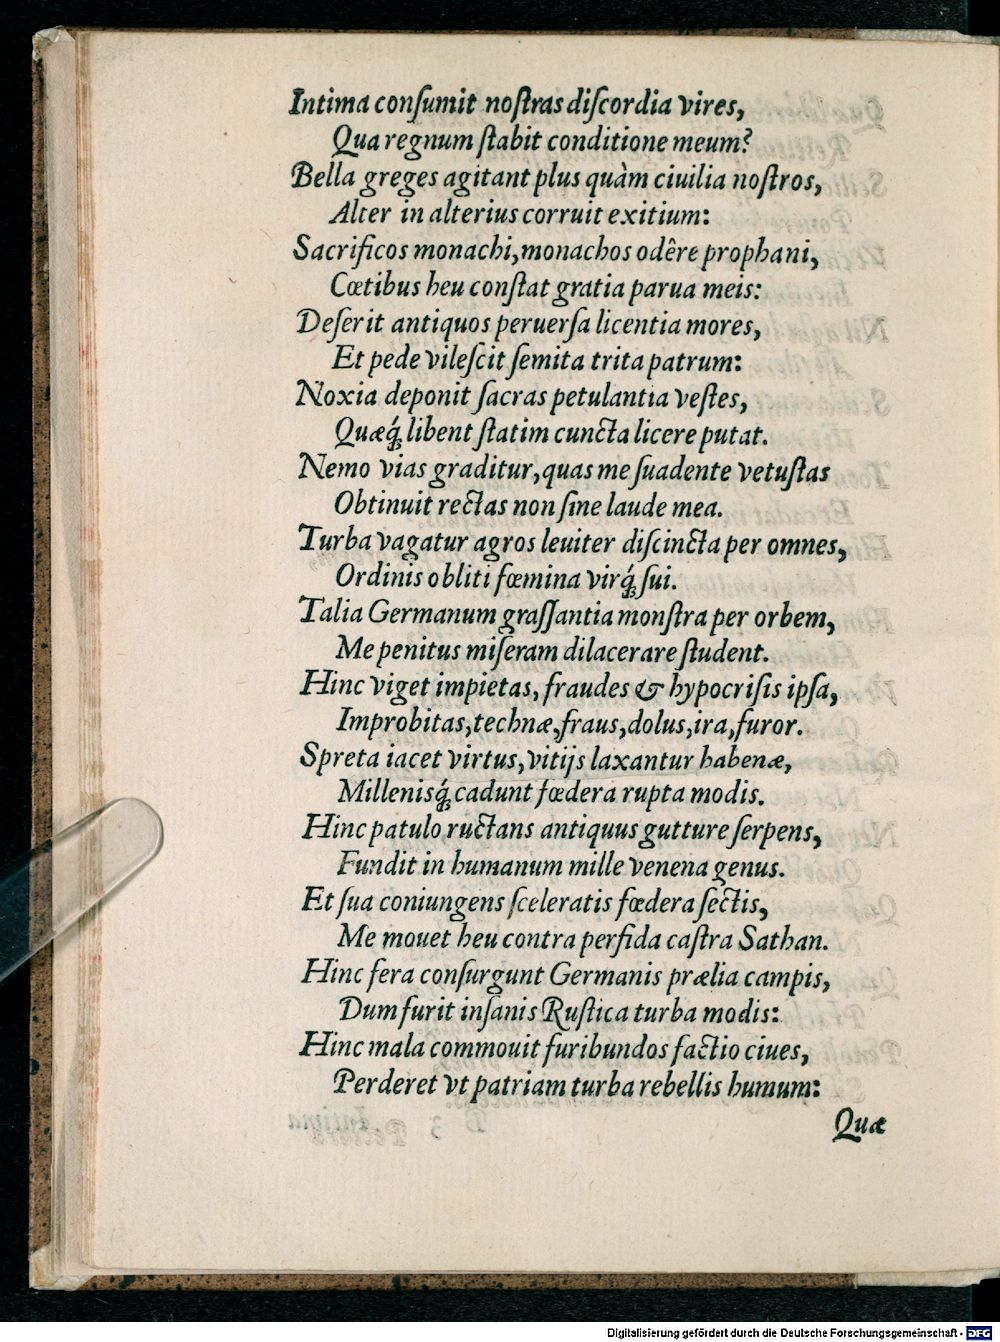 Intima conſumit noſtras diſcordia vires,
Qua regnum ſtabit conditione meum?
Bella greges agitant plus quàm ciuilia noſtros,
Alter in alterius corruit exitium:
Sacrificos monachi, monachos odêre prophani,
Cœtibus heu conſtat gratia parua meis:
Deſerit antiquos peruerſa licentia mores,
Et pede vileſcit ſemita trita patrum:
Noxia deponit ſacras petulantia veſtes,
Quæq́ꝫ libent ſtatim cuncta licere putat.
Nemo vias graditur, quas me ſuadente vetuſtas
Obtinuit rectas non ſine laude mea.
Turba vagatur agros leuiter diſcincta per omnes,
Ordinis obliti fœmina virq́ꝫ ſui.
Talia Germanum graſſantia monſtra per orbem,
Me penitus miſeram dilacerare ſtudent.
Hinc viget impietas, fraudes & hypocriſis ipſa,
Improbitas, technæ, fraus, dolus, ira, furor.
Spreta iacet virtus, vitijs laxantur habenæ,
Millenisq́ꝫ cadunt fœdera rupta modis.
Hinc patulo ructans antiquus gutture ſerpens,
Fundit in humanum mille venena genus.
Et ſua coniungens ſceleratis fœdera ſectis,
Me mouet heu contra perfida caſtra Sathan.
Hinc fera conſurgunt Germanis prælia campis,
Dum furit inſanis Ruſtica turba modis:
Hinc mala commouit furibundos factio ciues,
Perderet vt patriam turba rebellis humum:
Quæ
Digitalisierung gefördert durch die Deutsche Forschungsgemeinschaft - DFG